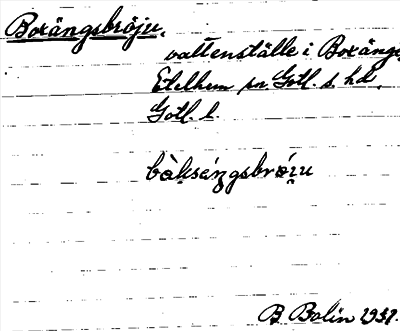 Boxängsbröju,
vattenställe i Boxänge,
Etelhem sn. Gotl. s. hd.
Gotl. l.
bàksæŋgsbrøi̯u
B. Bolin 1931.